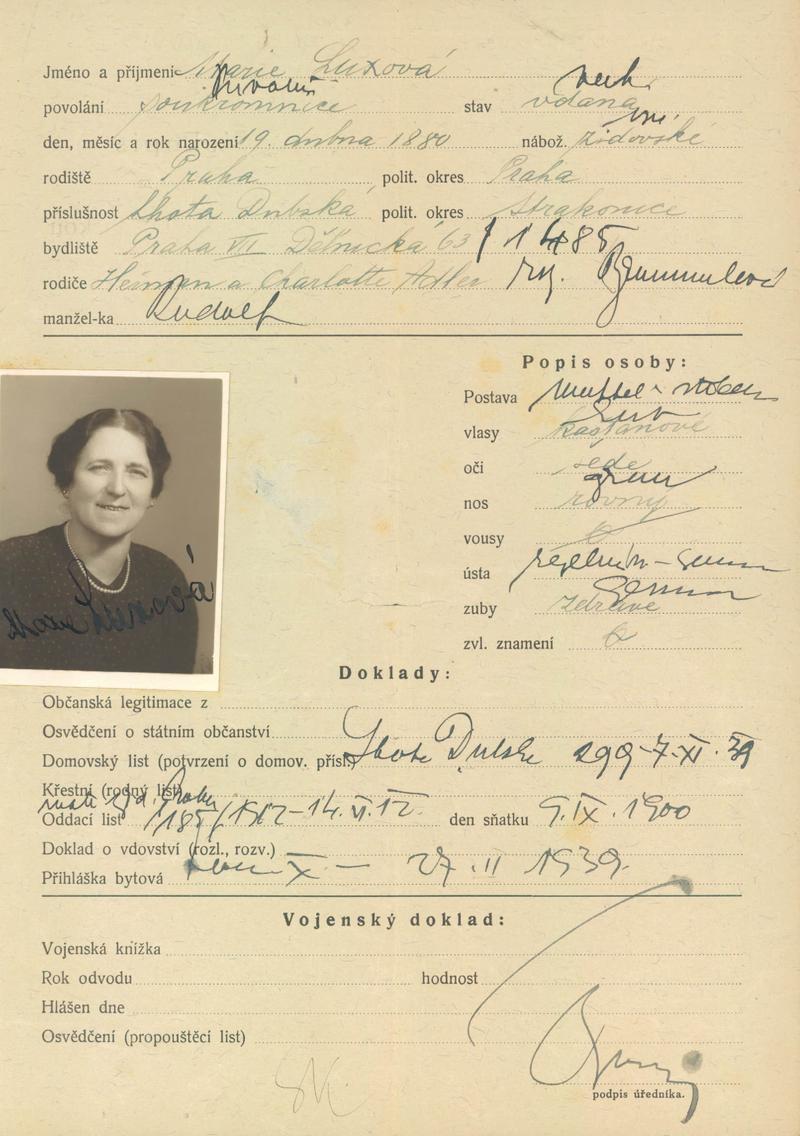 Jméno a příjmení Marie Luxová
povolání soukromnice Privatiere stav vdaná verh.
den, měsíc a rok narození 19. dubna 1880 nábož. židovské
rodiště Praha polit. okres Praha
příslušnost Lhota Dubská polit. okres Strakonice
bydliště Praha VII Dělnická 63 / 1485
rodiče Heinrich a Charlotte Adler roz.
manžel-ka Rudolf
Popis osoby:
Postava Mittel -
vlasy kaštanové
oči šedé grau
nos rovný
vousy
ústa regelm. -
zuby zdravé
zvl. znamení
Marie Luxová
Doklady:
Občanská legitimace z
Osvědčení o státním občanství
Domovský list (potvrzení o domov. přísl.) Lhota Dubská 299 - 7. XI. 39
Křestní (rodný list)
Oddací list 185/1912 - 14. VI. 12. den sňatku 9. IX. 1900
Doklad o vdovství (rozl., rozv.)
Přihláška bytová 27. II 1939.
Vojenský doklad:
Vojenská knížka
Rok odvodu hodnost
Hlášen dne
Osvědčení (propouštěcí list)
podpis úředníka.